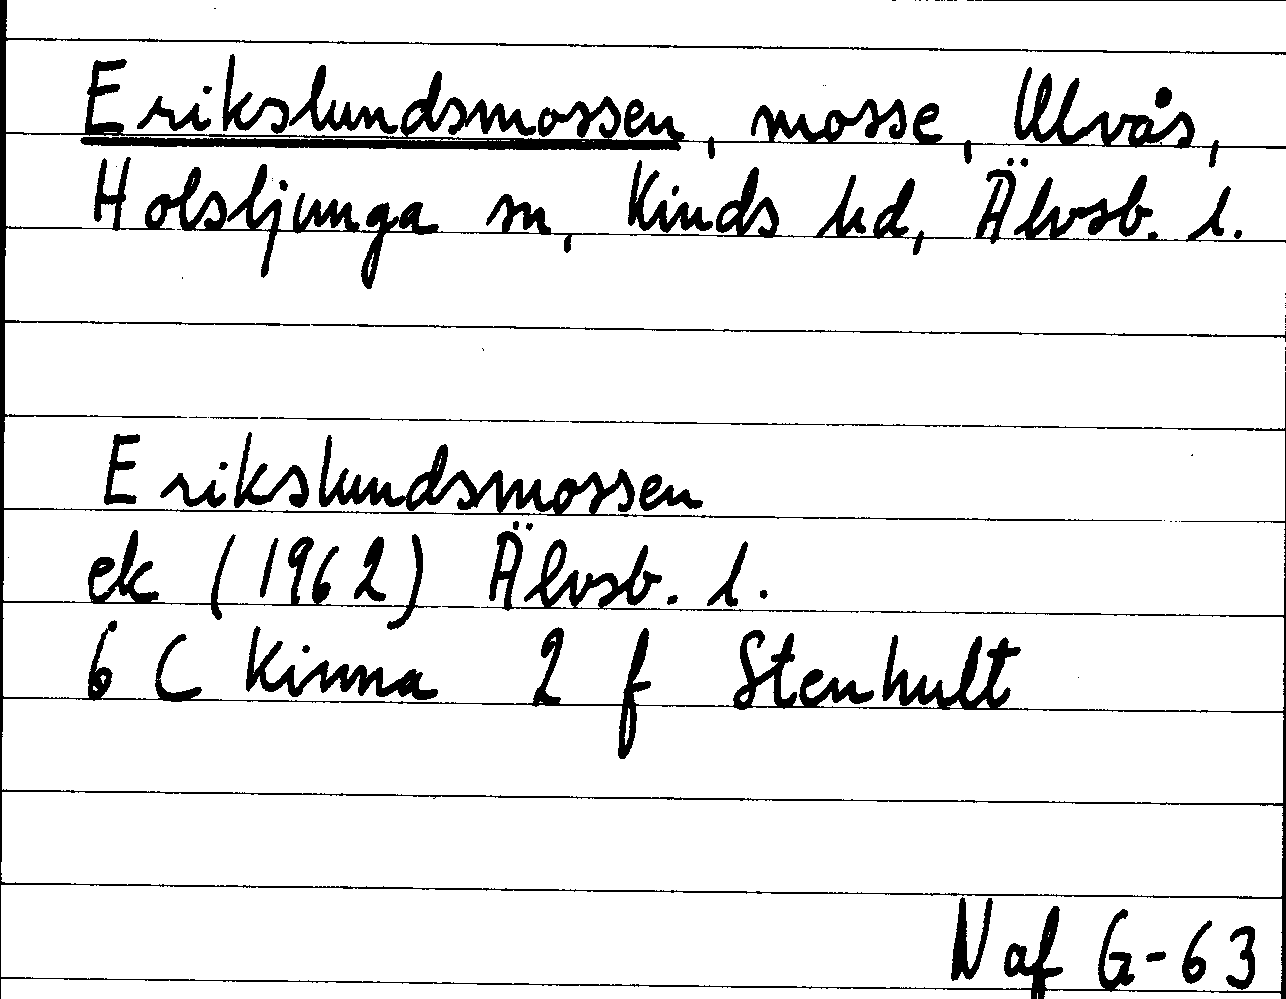 Erikslundsmossen, mosse, Ulvås,
Holsljunga sn, Kinds hd, Älvsb. l.
Erikslundsmossen
ek (1962) Älvsb. l.
6 C Kinna 2 f Stenhult
Naf G-63